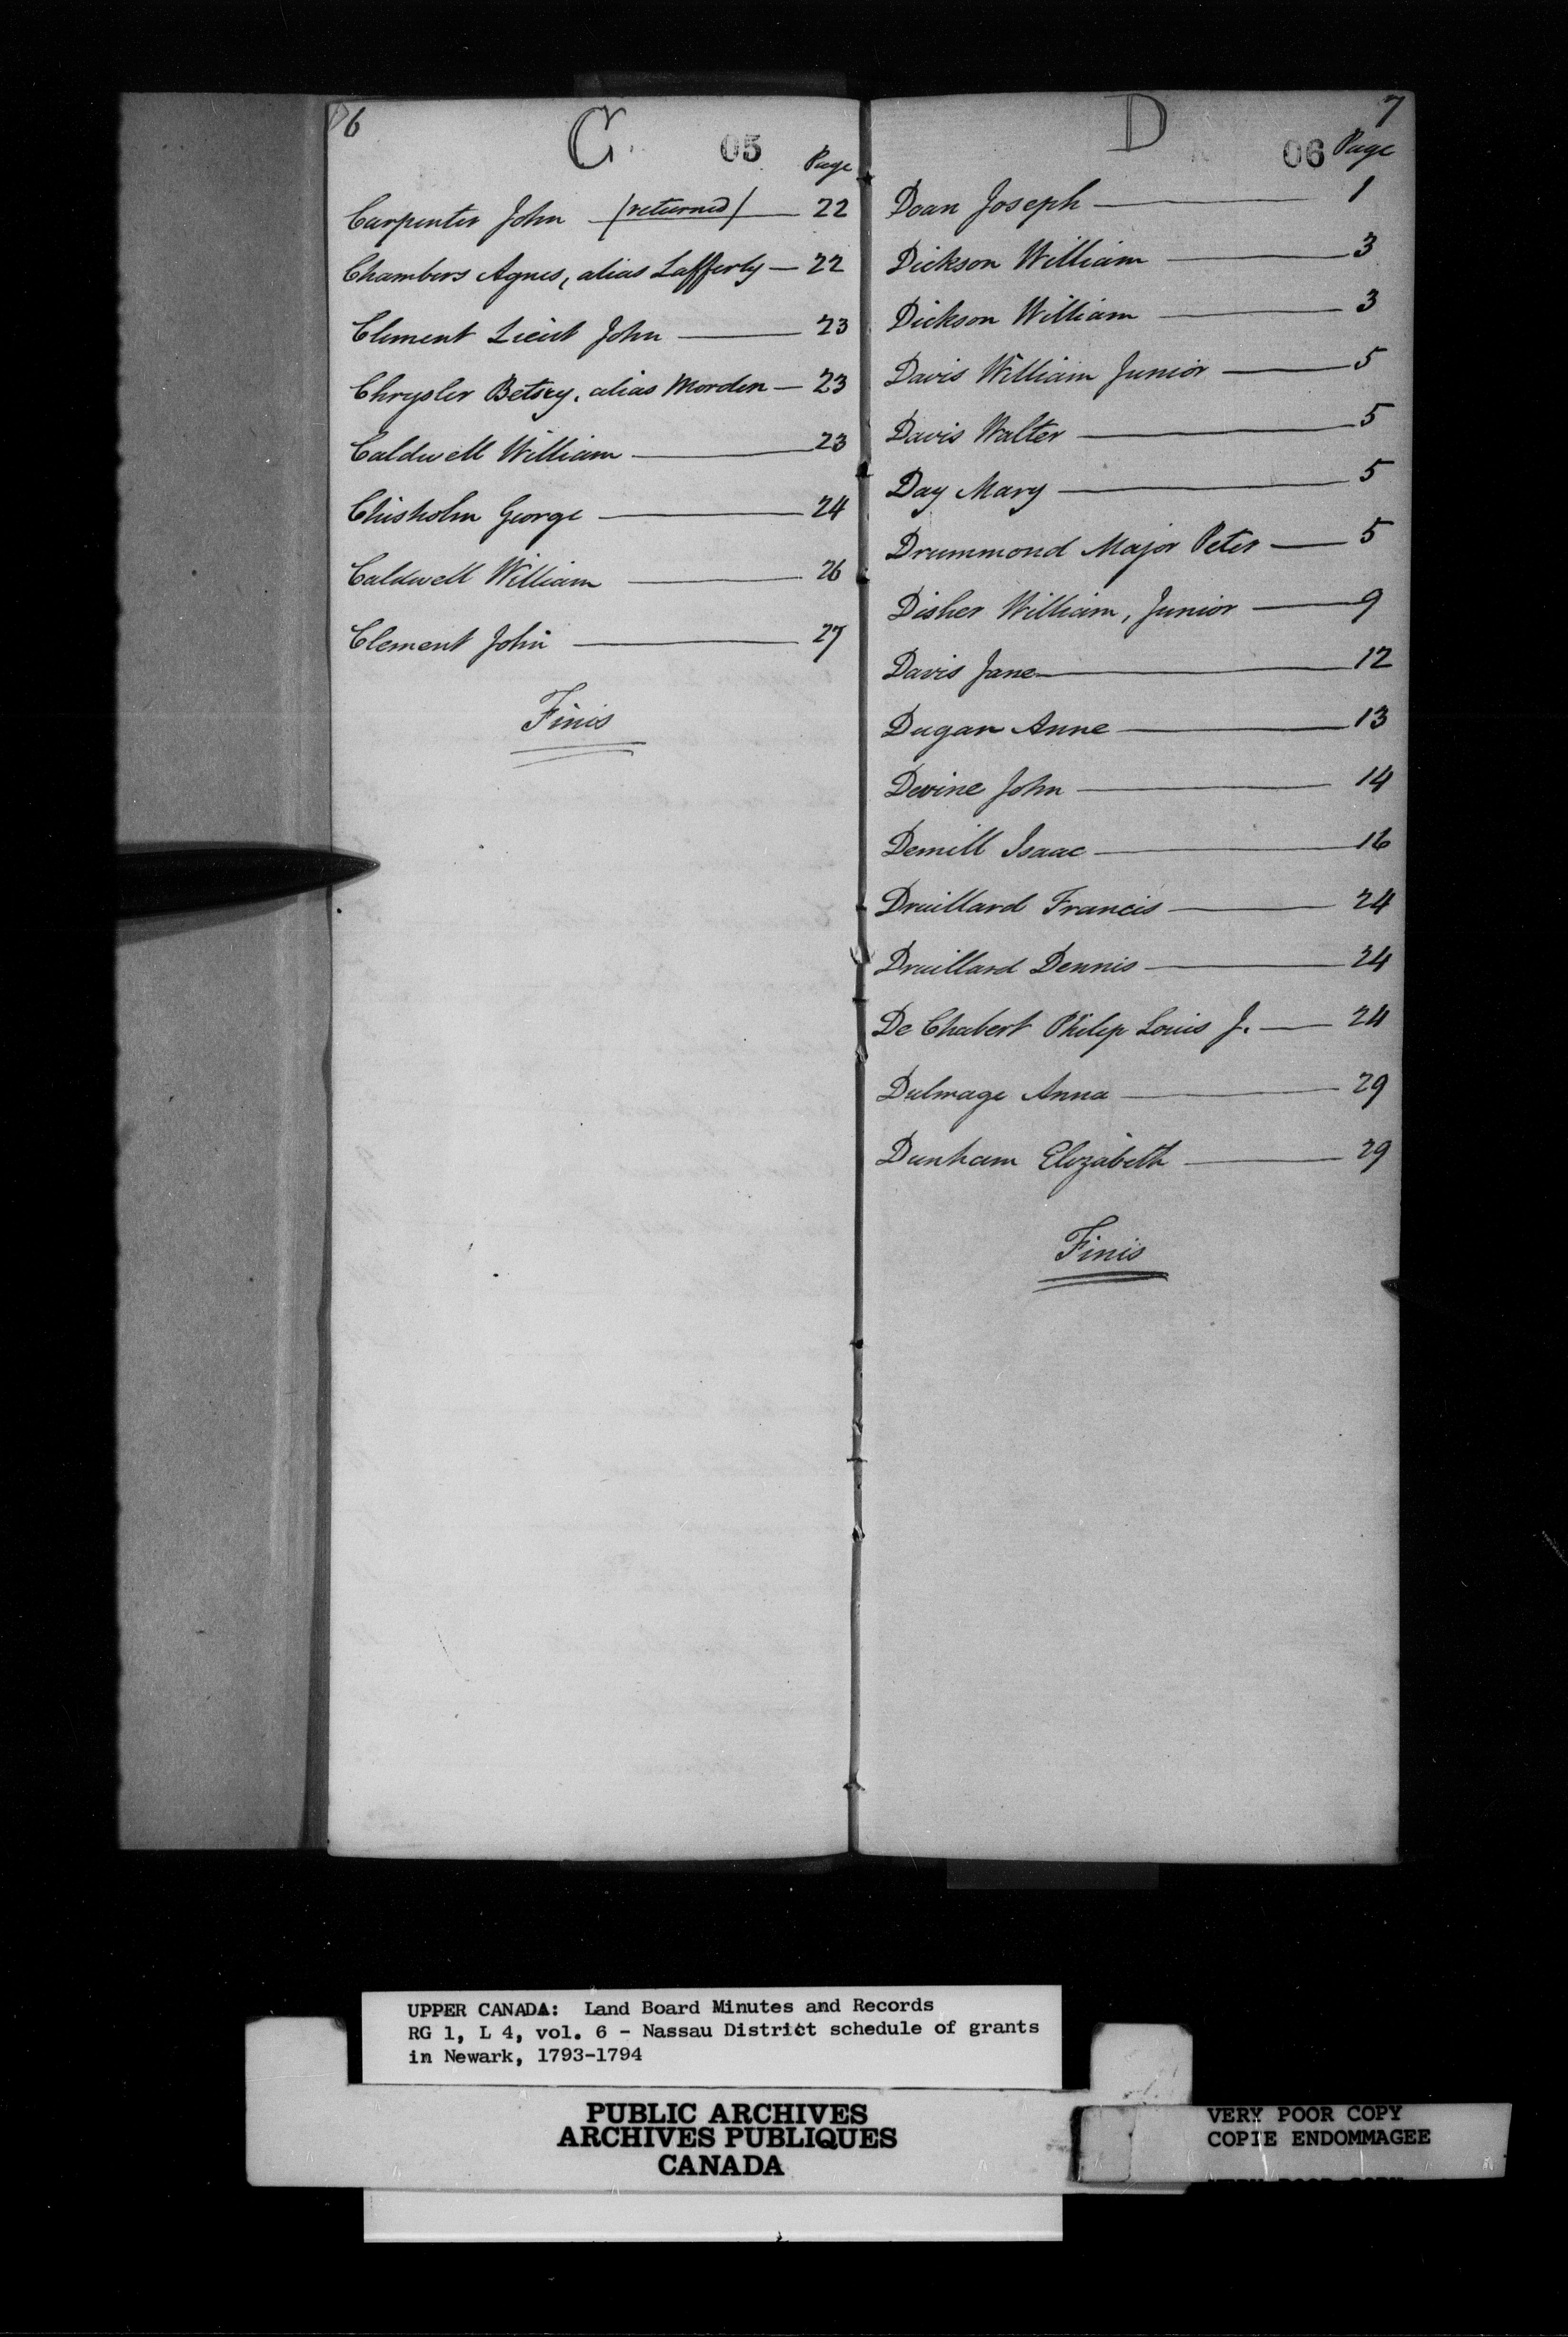 6
C
05
Page
Carpenter John (returned) 22
Chambers Agnes, alias Lafferty 22
Clement Lieut John 23
Chrysler Betsey, alias Morden 23
Caldwell William 23
Chisholm George 24
Caldwell William 26
Clement John 27
Finis
7
D
06
Page
Doan Joseph 1
Dickson William 3
Dickson William 3
Davis William Junior 5
Davis Walter 5
Day Mary 5
Drummond Major Peter 5
Disher William, Junior 9
Davis Jane 12
Dugan Anne 13
Devine John 14
Demill Isaac 16
Druillard Francis 24
Druillard Dennis 24
De Chabert Philip Louis J. 24
Dulmage Anna 29
Dunham Elizabeth 29
Finis
UPPER CANADA: Land Board Minutes and Records
RG 1, L 4, vol. 6 - Nassau District schedule of grants
in Newark, 1793-1794
PUBLIC ARCHIVES
ARCHIVES PUBLIQUES
CANADA
VERY POOR COPY
COPIE ENDOMMAGEE